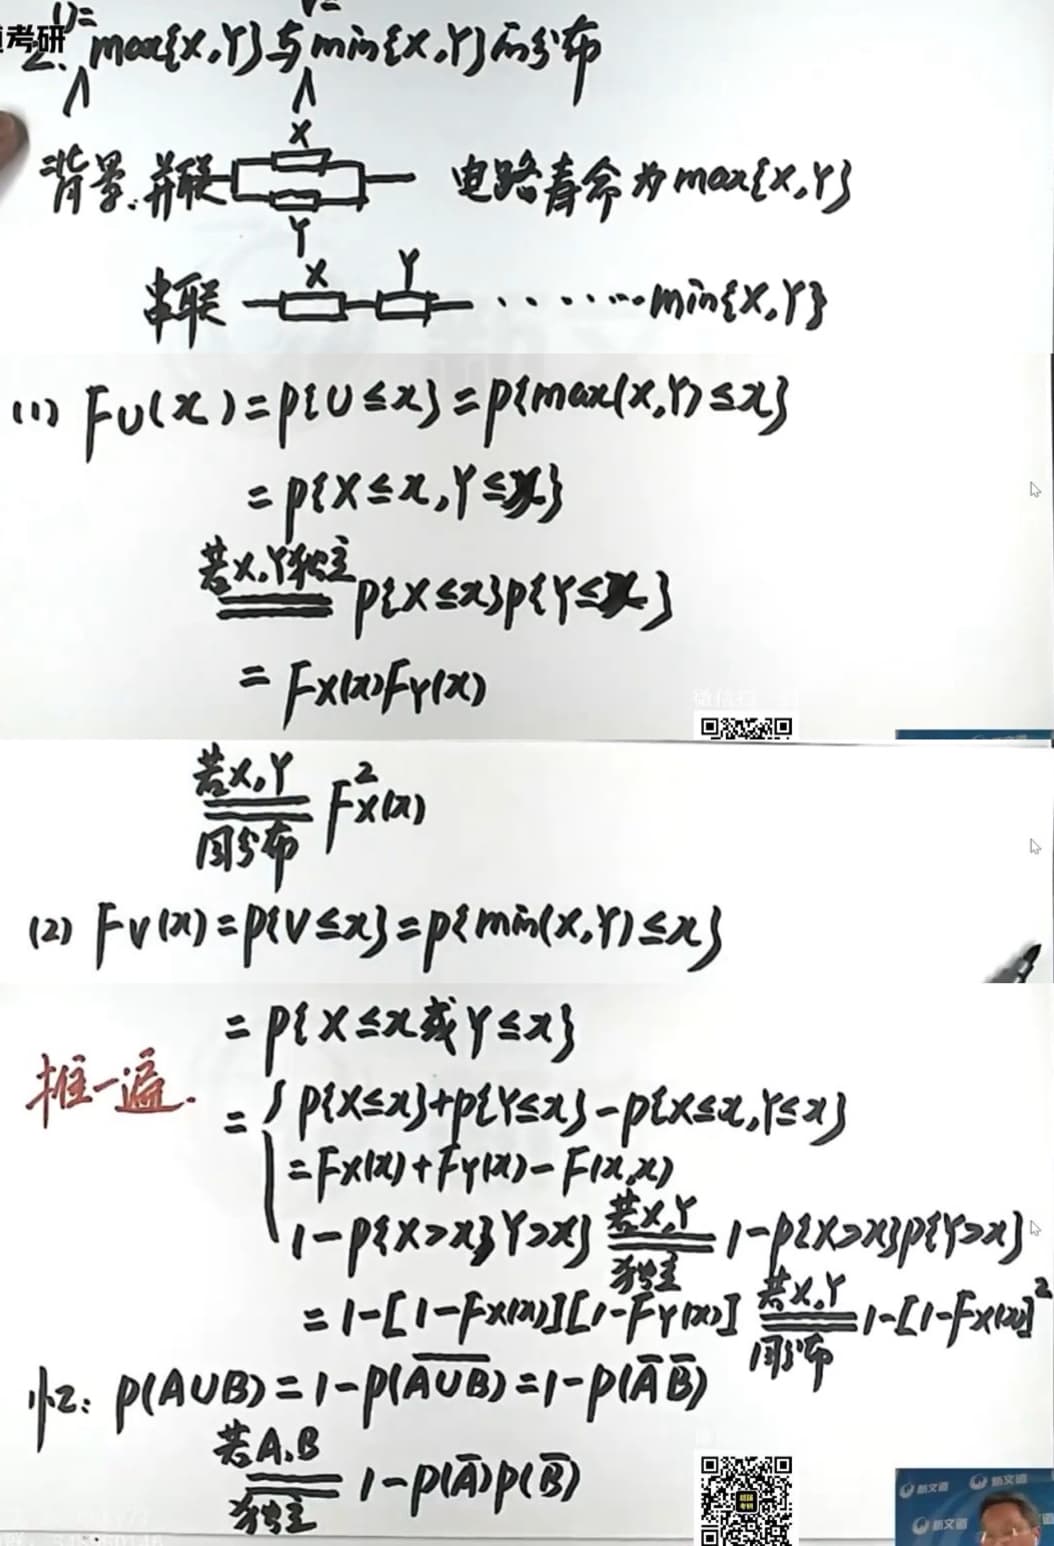 考研
U=
V=
2. max{X,Y}与min{X,Y}的分布
背景:并联
X
Y
电路寿命为max{X,Y}
串联
X
Y
·······min{X,Y}
(1) FU(x)=P{U≤x}=P{max(X,Y)≤x}
=P{X≤x,Y≤x}
若X,Y独立
P{X≤x}P{Y≤x}
=FX(x)FY(x)
若X,Y
同分布
F²X(x)
(2) FV(x)=P{V≤x}=P{min(X,Y)≤x}
=P{X≤x或Y≤x}
推一遍.
={P{X≤x}+P{Y≤x}-P{X≤x,Y≤x}
=FX(x)+FY(x)-F(x,x)
1-P{X>x,Y>x} 若X,Y 独立 1-P{X>x}P{Y>x}
=1-[1-FX(x)][1-FY(x)] 若X,Y 同分布 1-[1-FX(x)]²
忆: P(A∪B)=1-P(A̅∪̅B̅)=1-P(A̅ B̅)
若A,B
独立
1-P(A̅)P(B̅)
新文道
新文道
新文道